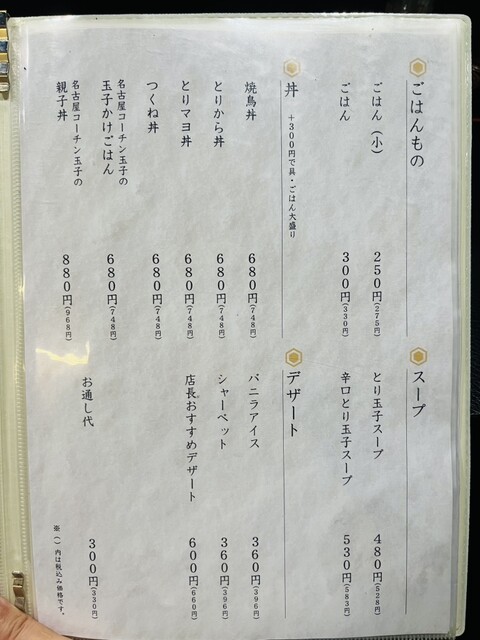 ごはんもの
ごはん（小）　250円（275円）
ごはん　300円（330円）
丼　＋300円で具・ごはん大盛り
焼鳥丼　680円（748円）
とりから丼　680円（748円）
とりマヨ丼　680円（748円）
つくね丼　680円（748円）
名古屋コーチン玉子の
玉子かけごはん　680円（748円）
名古屋コーチン玉子の
親子丼　880円（968円）
スープ
とり玉子スープ　480円（528円）
辛口とり玉子スープ　530円（583円）
デザート
バニラアイス　360円（396円）
シャーベット　360円（396円）
店長おすすめデザート　600円（660円）
お通し代　300円（330円）
※（）内は税込み価格です。